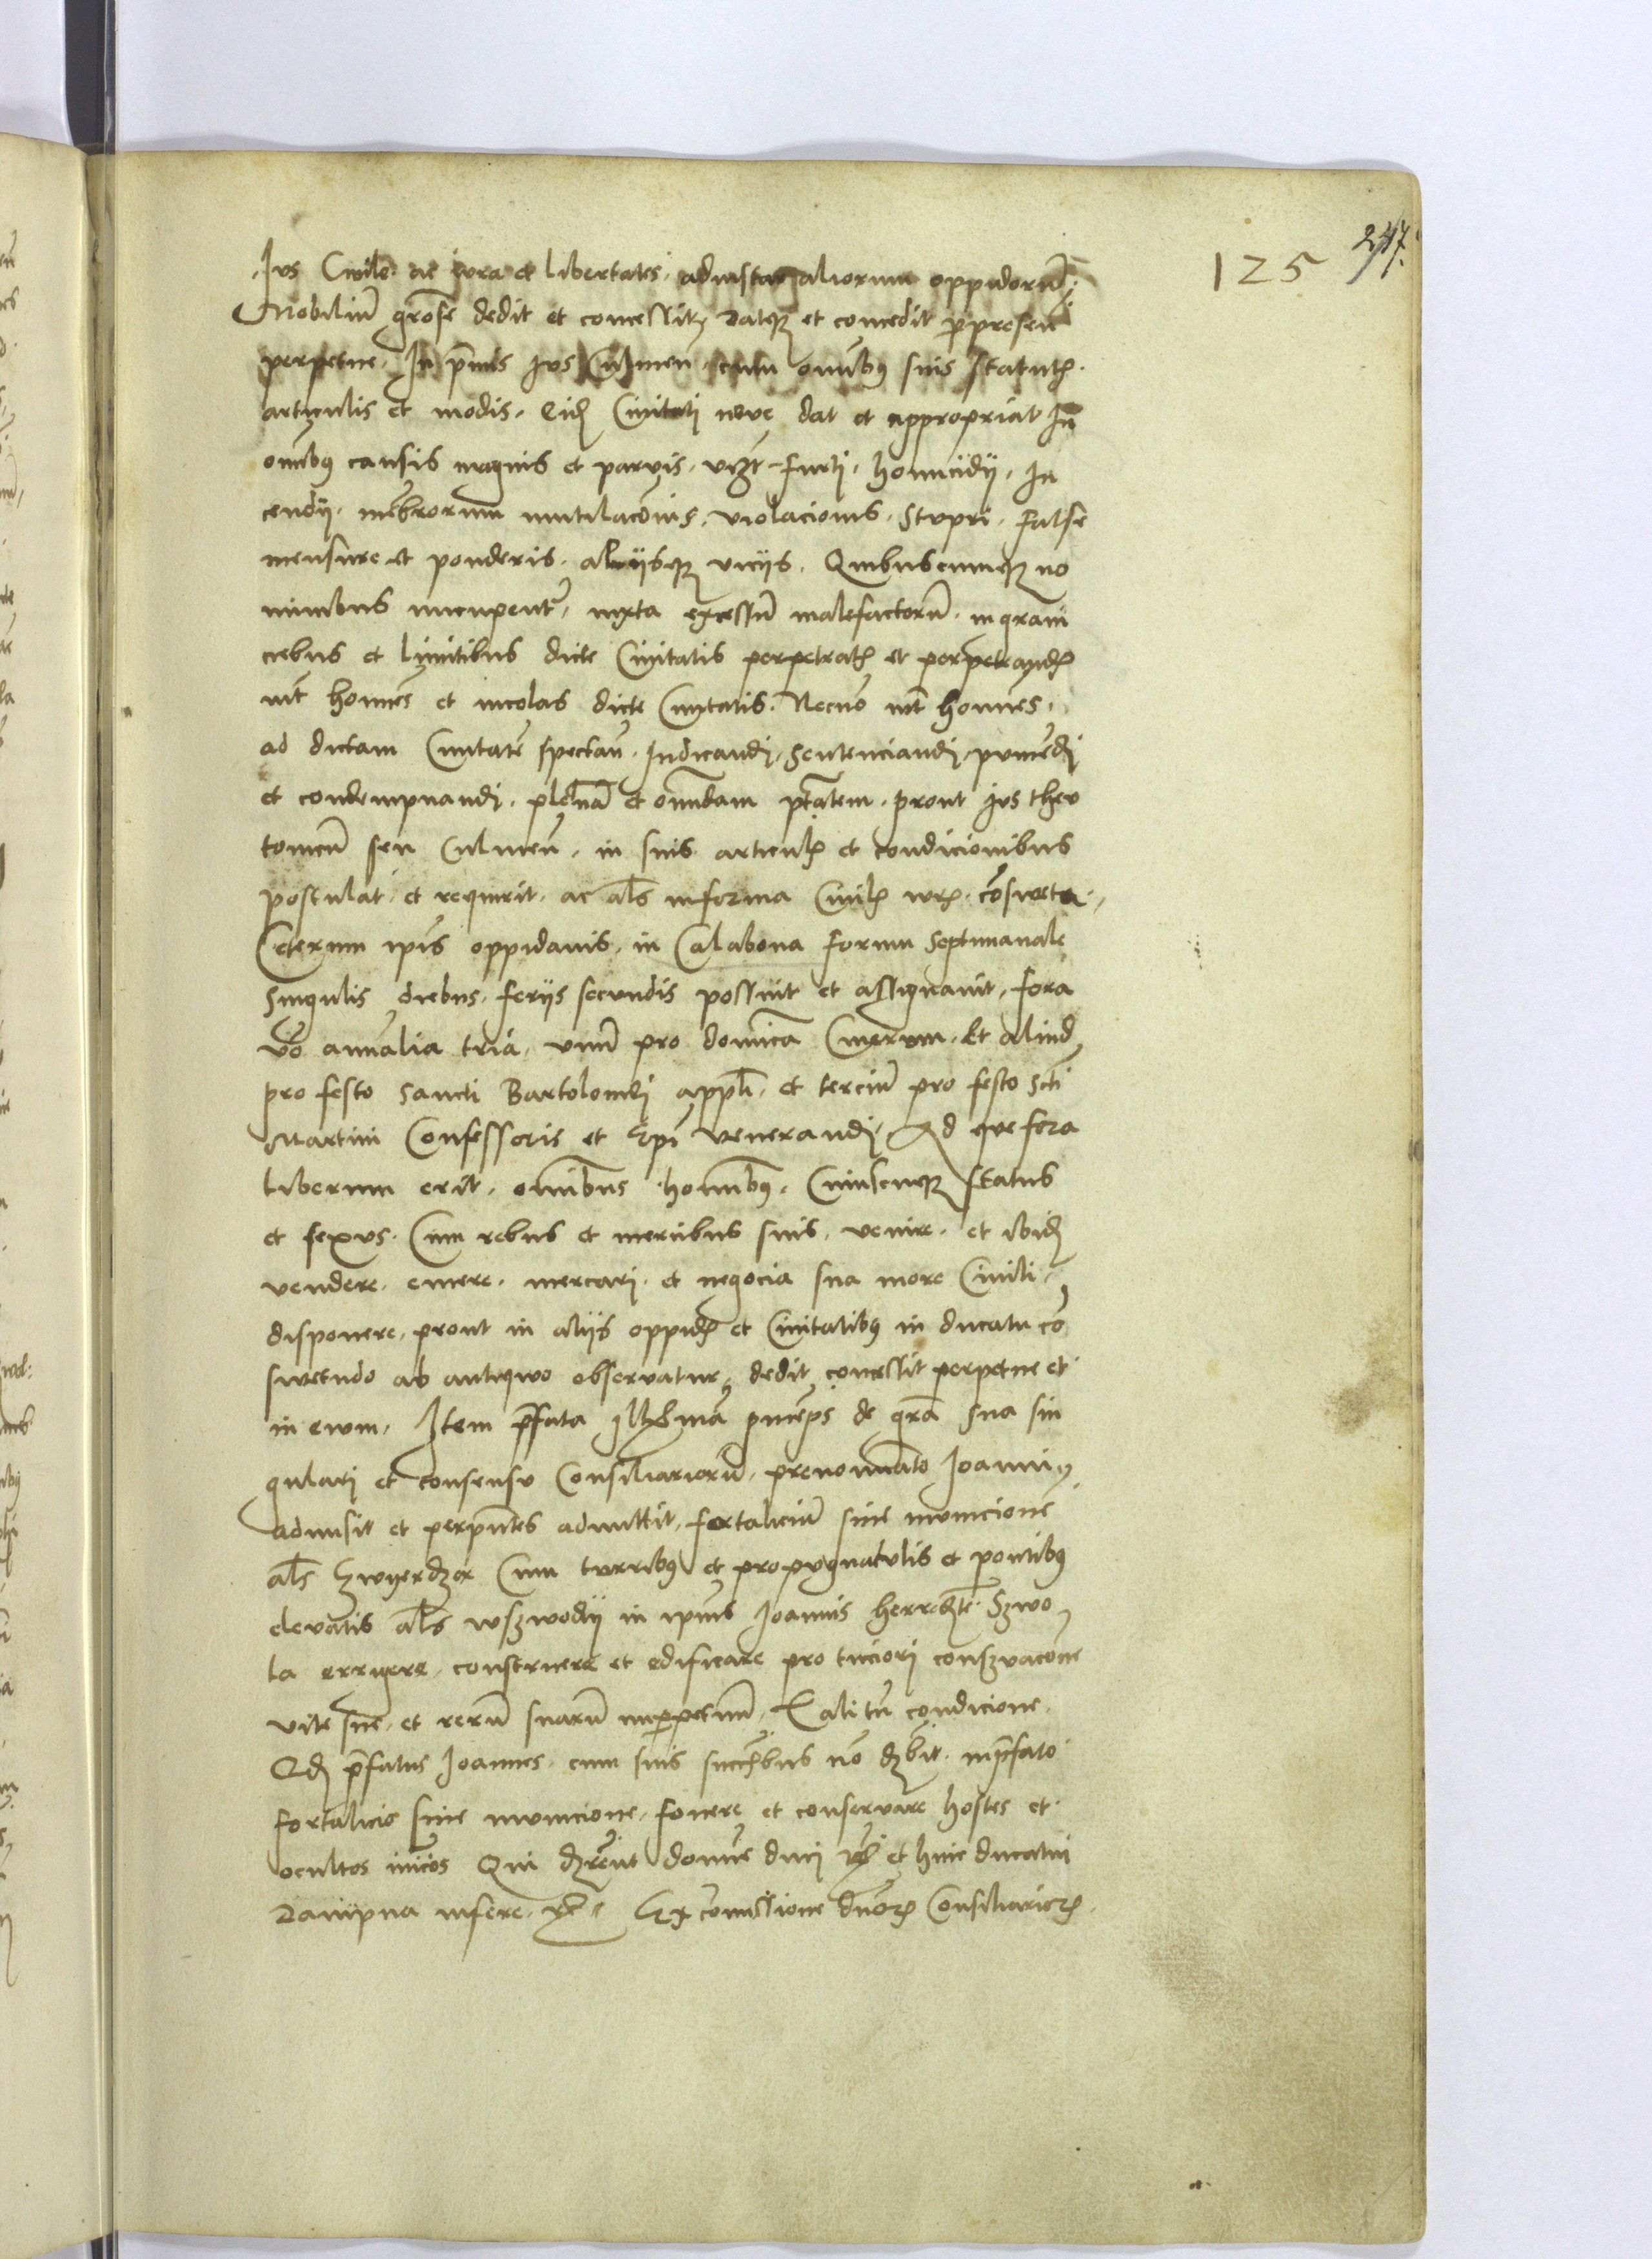 125
247
Ius Civile ac iura et libertates adinstar aliorum oppidorū
Nobiliū grōse dedit et concessit, datqꝫ et concedit ꝑpresen
perpetue. In p̄mis ius Culmen̄ omībꝯ suis statutꝭ
articulis et modis. Eidꝫ Civitati nove dat et appropriat In
omībꝯ causis magnis et parvis, vꝫt furti, homicidij, In
cendij, mēbrorum mutilacōnis, violacionis, Stupri, false
mensure et ponderis, aliijsqꝫ vicijs, Quibuscumqꝫ no
minibus nucupentᷣ, iuxta excessū malefactorū, in grani
ciebus et limitibus dicte Civitatis perpetratꝭ et perpetrandꝭ
int̄ homīes et incolas dicte Civitatis. Necnō int̄ homīes,
ad dictam Civitatē spectan̄. Iudicandi, Sentenciandi, puniēdi
et condempnandi, plenā et omīdam ptātem, prout ius theu
tonicū seu Culmen̄, in suis articulꝭ et condicionibus
postulat et requirit, ac al̄s in forma Civilꝭ iurꝭ cōsveta.
Ceterum ipīs oppidanis, in Calabona forum septimanale
singulis diebus, ferijs secundis possuit et assignavit, fora
v̄o annalia tria, unū pro domīca Cinerum. Et aliud
pro festo Sancti Bartolomei appl̄i, et terciū pro festo Sc̄ti
Martini Confessoris et Ep̄i venerandi. Ad que fora
liberum erit, omībus homībꝯ, Cuiuscuqꝫ status
et sexus. Cum rebus et mercibus suis, venire, et ibidꝫ
vendere, emere, mercari, et negocia sua more Civili,
disponere, prout in alijs oppidꝭ et Civitatibꝯ in ducatu cō
swetudo ab antiquo observatur, dedit concessit perpetue et
in ewm. Item p̄fata Ill̄ma pnīceps de grā sua sin
gulari et consensu Consiliariorū, prenomīato Ioanni,
admisit et perpn̄tes admittit, fortaliciū sive municionē
al̄s Cum turribꝯ et propugnatulis et pontibꝯ
elevatis al̄s wszwodij in ipīus Ioannis Szwo
la errigere, construere et edificare pro tuciori consꝫvacōne
vite sue, et rerū suarū inꝑpetuū. Tali tn̄ condicione.
Qdꝫ p̄fatus Ioannes, cum suis succ̄ībus nō dꝫbit in p̄fato
fortalicio sive municione, fovere et conservare hostes et
ocultos inīcos Qui domīe duci et huic ducatui
Dampna inferre, Ex cōmissione dn̄orꝫ Consiliariorꝫ